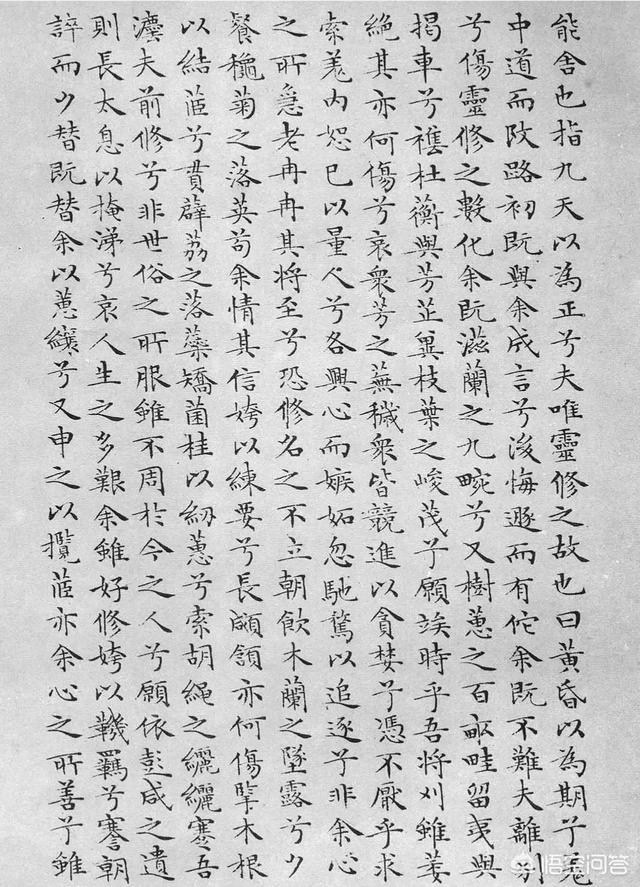 能舍也指九天以為正兮夫唯靈修之故也曰黃昏以為期兮羌
中道而改路初既與余成言兮後悔遯而有佗余既不難夫離別
兮傷靈修之數化余既滋蘭之九畹兮又樹蕙之百畝畦留夷與
揭車兮襍杜蘅與芳芷兾枝葉之峻茂兮願竢時乎吾將刈雖萎
絕其亦何傷兮哀衆芳之蕪穢衆皆競進以貪婪兮憑不厭乎求
索羌内恕己以量人兮各興心而嫉妬忽馳騖以追逐兮非余心
之所急老冉冉其將至兮恐修名之不立朝飲木蘭之墜露兮夕
餐穐菊之落英苟余情其信姱以練要兮長顑頷亦何傷擥木根
以結茝兮貫薜荔之落蘂矯菌桂以紉蕙兮索胡繩之纚纚謇吾
灋夫前修兮非世俗之所服雖不周於今之人兮願依彭咸之遺
則長太息以掩涕兮哀人生之多艱余雖好修姱以鞿羈兮謇朝
誶而夕替既替余以蕙纕兮又申之以攬茝亦余心之所善兮雖
悟空问答